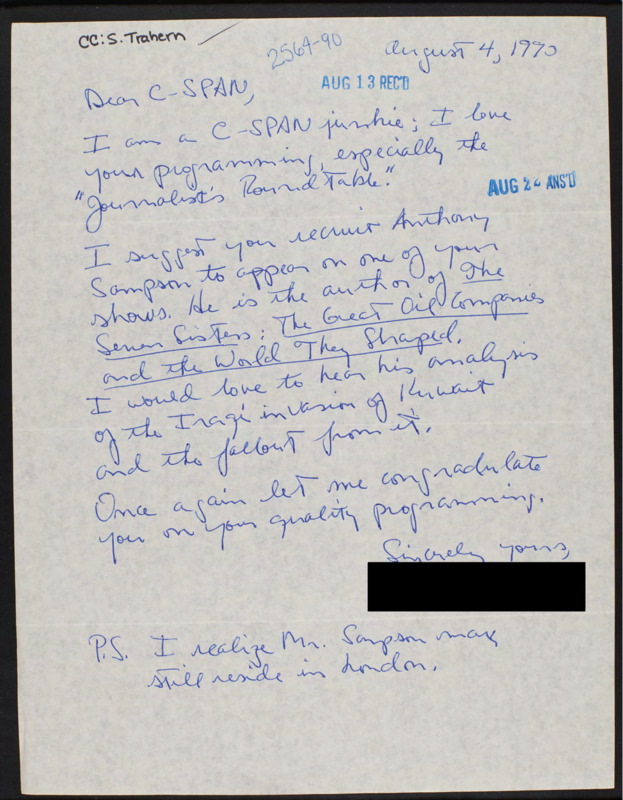 CC: S. Trahern
2564-90
August 4, 1990
AUG 13 REC'D
Dear C-SPAN,
I am a C-SPAN junkie; I love
your programming, especially the
"Journalist's Round Table."
AUG 24 ANS'D
I suggest you recruit Anthony
Sampson to appear on one of your
shows. He is the author of The
Seven Sisters: The Great Oil Companies
and the World They Shaped.
I would love to hear his analysis
of the Iraqi invasion of Kuwait
and the fallout from it.
Once again let me congradulate
you on your quality programming.
Sincerely yours,
P.S. I realize Mr. Sampson may
still reside in London.